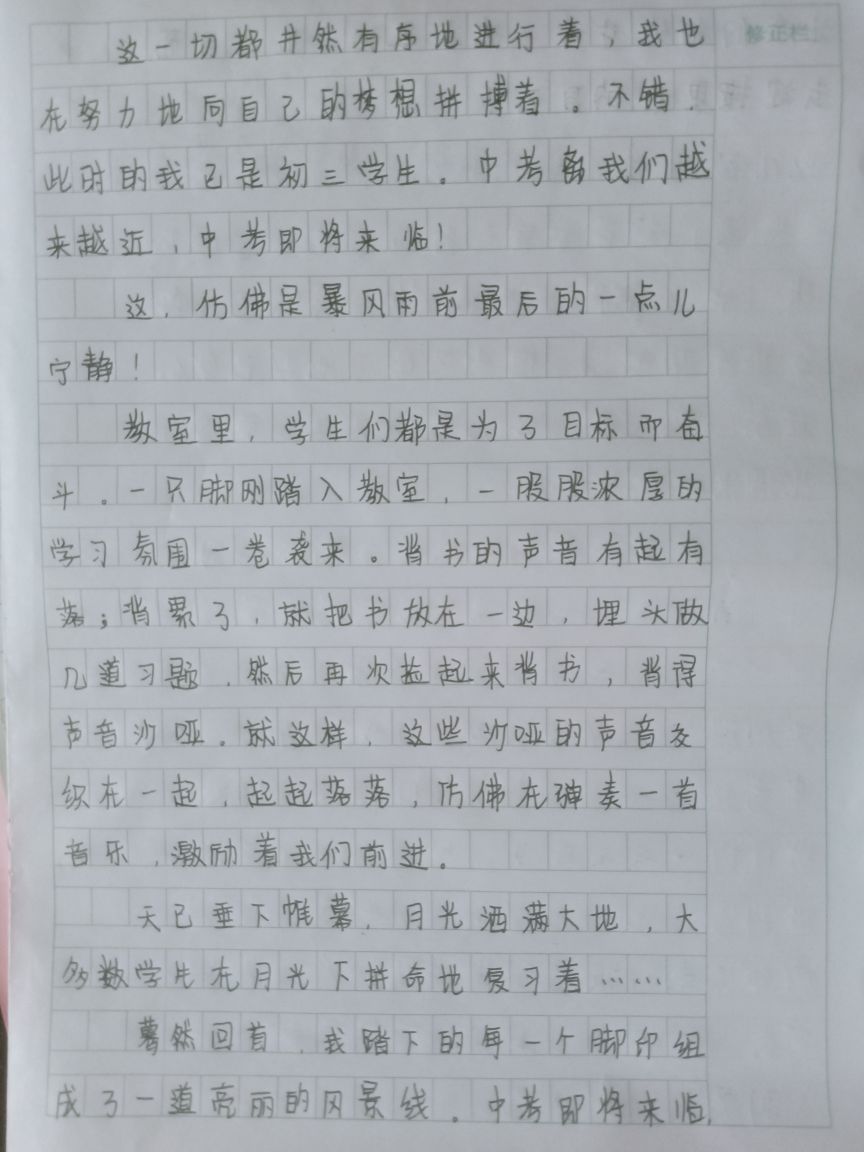 修正栏
这一切都井然有序地进行着，我也
在努力地向自己的梦想拼搏着。不错，
此时的我已是初三学生。中考离我们越
来越近，中考即将来临！
这，仿佛是暴风雨前最后的一点儿
宁静！
教室里，学生们都是为了目标而奋
斗。一只脚刚踏入教室，一股股浓厚的
学习氛围一卷袭来。背书的声音有起有
落；背累了，就把书放在一边，埋头做
几道习题，然后再次捡起来背书，背得
声音沙哑。就这样，这些沙哑的声音交
织在一起，起起落落，仿佛在弹奏一首
音乐，激励着我们前进。
天已垂下帷幕，月光洒满大地，大
多数学生在月光下拼命地复习着……
蓦然回首，我踏下的每一个脚印组
成了一道亮丽的风景线。中考即将来临，